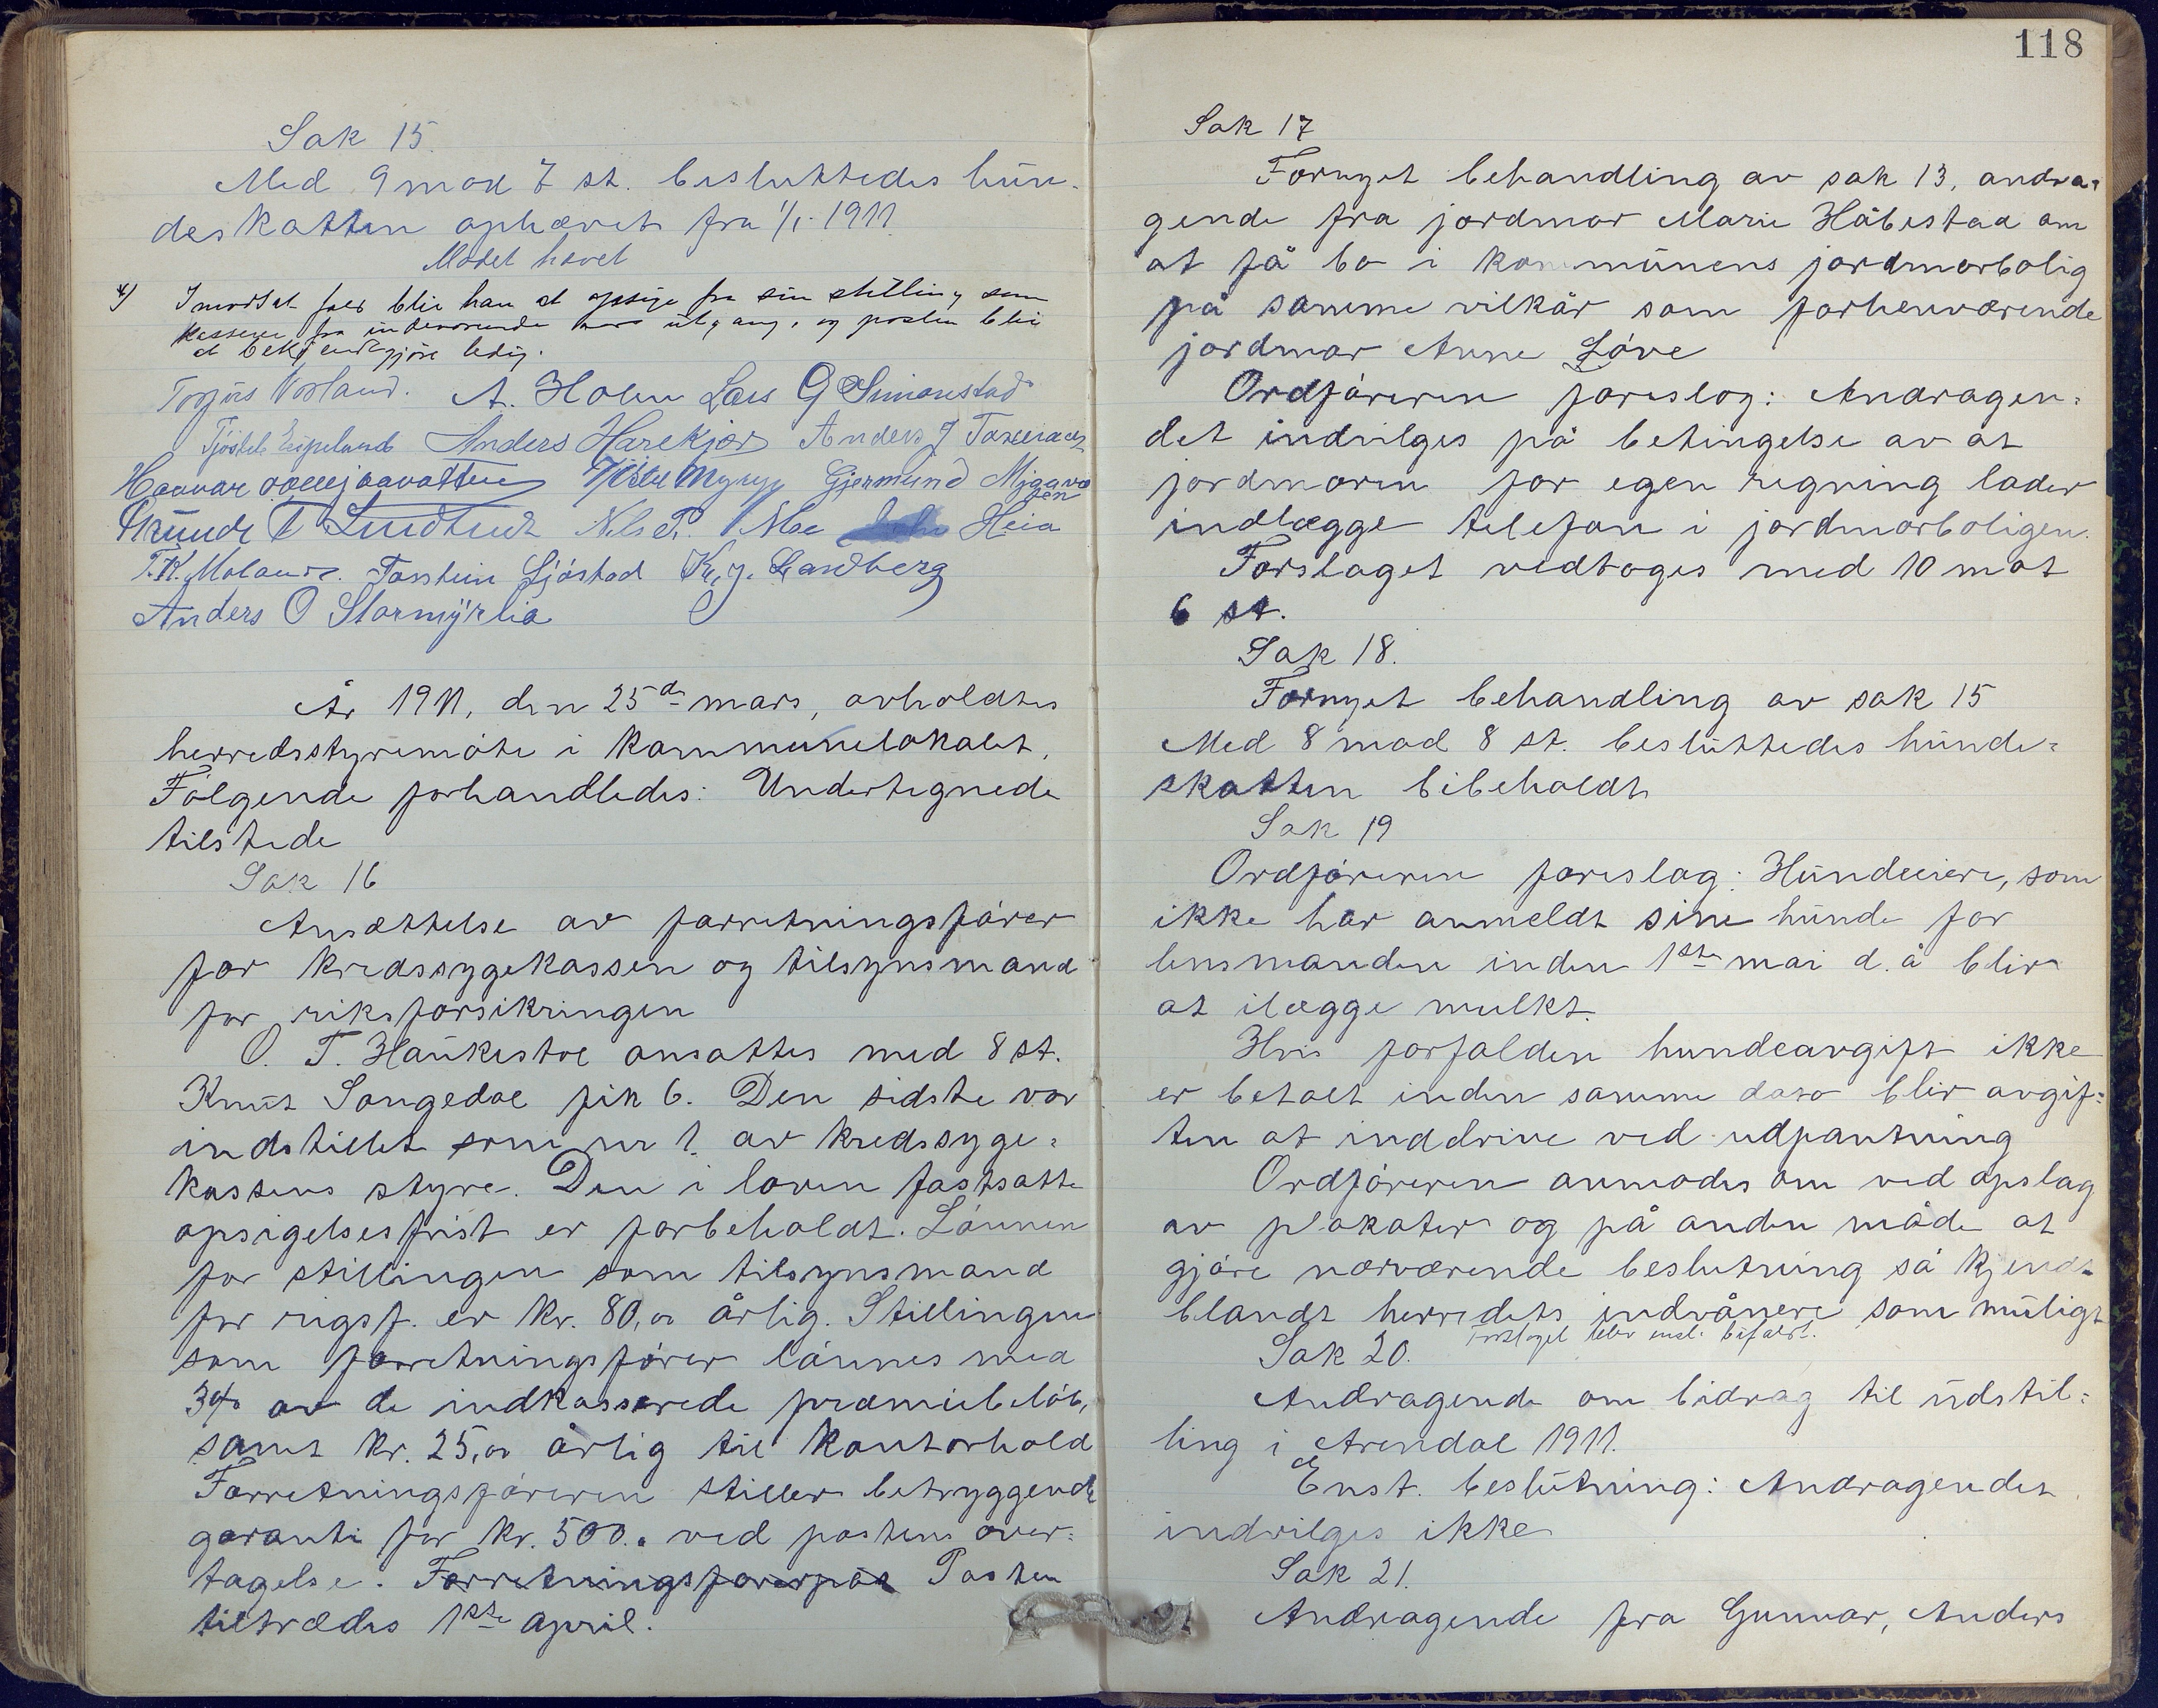 Sak 15.
Med 9 mod 7 st. besluttedes hun-
deskatten ophævet fra 1/1 1911.
Mødet hævet
4) I motsat fald blir han at opsige fra sin stilling som
kasserer fra indeværende aars utgang, og posten blir
at bekjendtgjøre ledig.
A. Holm Lars G Simonstad
Tjøstel Espelund Anders Harekjær Anders J
Gjermund Mjaava
ten
Nils P. Heia
Torstein Sjöstad K. J. Sandberg
Anders O Stormyrlia
År 1911, den 25de mars, avholdtes
herredsstyremöte i kommunelokalet.
Fölgende forhandledes: Undertegnede
tilstede
Sak 16
Ansættelse av forretningsförer
for kredssygekassen og tilsynsmand
for riksforsikringen
O. T. Haukestöl ansattes med 8 st.
Knut Songedal fik 6. Den sidste var
indstillet som nr 1. av kredssyge=
kassens styre. Den i loven fastsatte
opsigelsesfrist er forbeholdt. Lönnen
for stillingen som tilsynsmand
for rigsf. er kr. 80,00 årlig. Stillingen
som forretningsförer lönnes med
3% av de indkasserede præmiebelöb,
samt kr. 25,00 årlig til kontorhold
Forretningsföreren stiller betryggende
garanti for kr. 500.- ved postens over=
tagelse. Forretningsförerpos Posten
tiltrædes 1ste april.
118
Sak 17
Fornyet behandling av sak 13, andra=
gende fra jordmor Marie Håbestad om
at få bo i kommunens jordmorbolig
på samme vilkår som forhenværende
jordmor Anne Löve
Ordföreren foreslog: Andragen=
det indvilges på betingelse av at
jordmoren for egen regning lader
indlægge telefon i jordmorboligen.
Forslaget vedtoges med 10 mot
6 st.
Sak 18.
Fornyet behandling av sak 15
Med 8 mod 8 st. besluttedes hunde=
skatten bibeholdt
Sak 19
Ordföreren foreslog: Hundeeiere, som
ikke har anmeldt sine hunde for
lensmanden inden 1ste mai d. å blir
at ilægge mulkt.
Hvis forfalden hundeavgift ikke
er betalt inden samme dato blir avgif=
ten at inddrive ved udpantning
Ordföreren anmodes om ved opslag
av plakater og på anden måde at
gjöre nærværende beslutning så kjendt
blandt herredets indvånere som muligt
Forslaget blev enst. bifaldt.
Sak 20.
Andragende om bidrag til udstil=
ling i Arendal 1911.
Enst. beslutning: Andragendet
indvilges ikke
Sak 21.
Andragende fra Gunnar, Anders